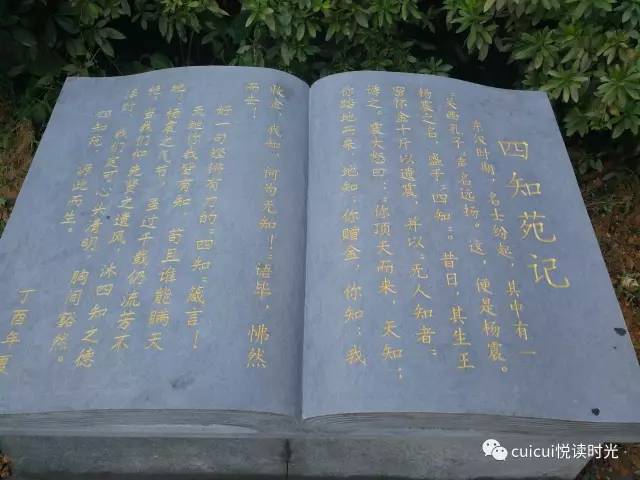 四知苑记
东汉时期，名士纷起，其中有一
“关西孔子”声名远扬。这，便是杨震。
杨震之名，盛于“四知”。昔日，其生王
密怀金十斤以遗震，并以“无人知者”
诱之。震大怒曰：“你顶天而来，天知；
你踏地而来，地知；你赠金，你知；我
收金，我知，何为无知！”语毕，怫然
而去！
好一句铿锵有力的“四知”箴言！
天地你我皆有知，苟且谁能瞒天
地。杨震之气节，虽过千载仍流芳不
绝。当我们仰先贤之遗风，沐四知之德
时，我们定可心头清明，胸间豁然。
四知苑，源此而生。
丁酉年夏
cuicui悦读时光